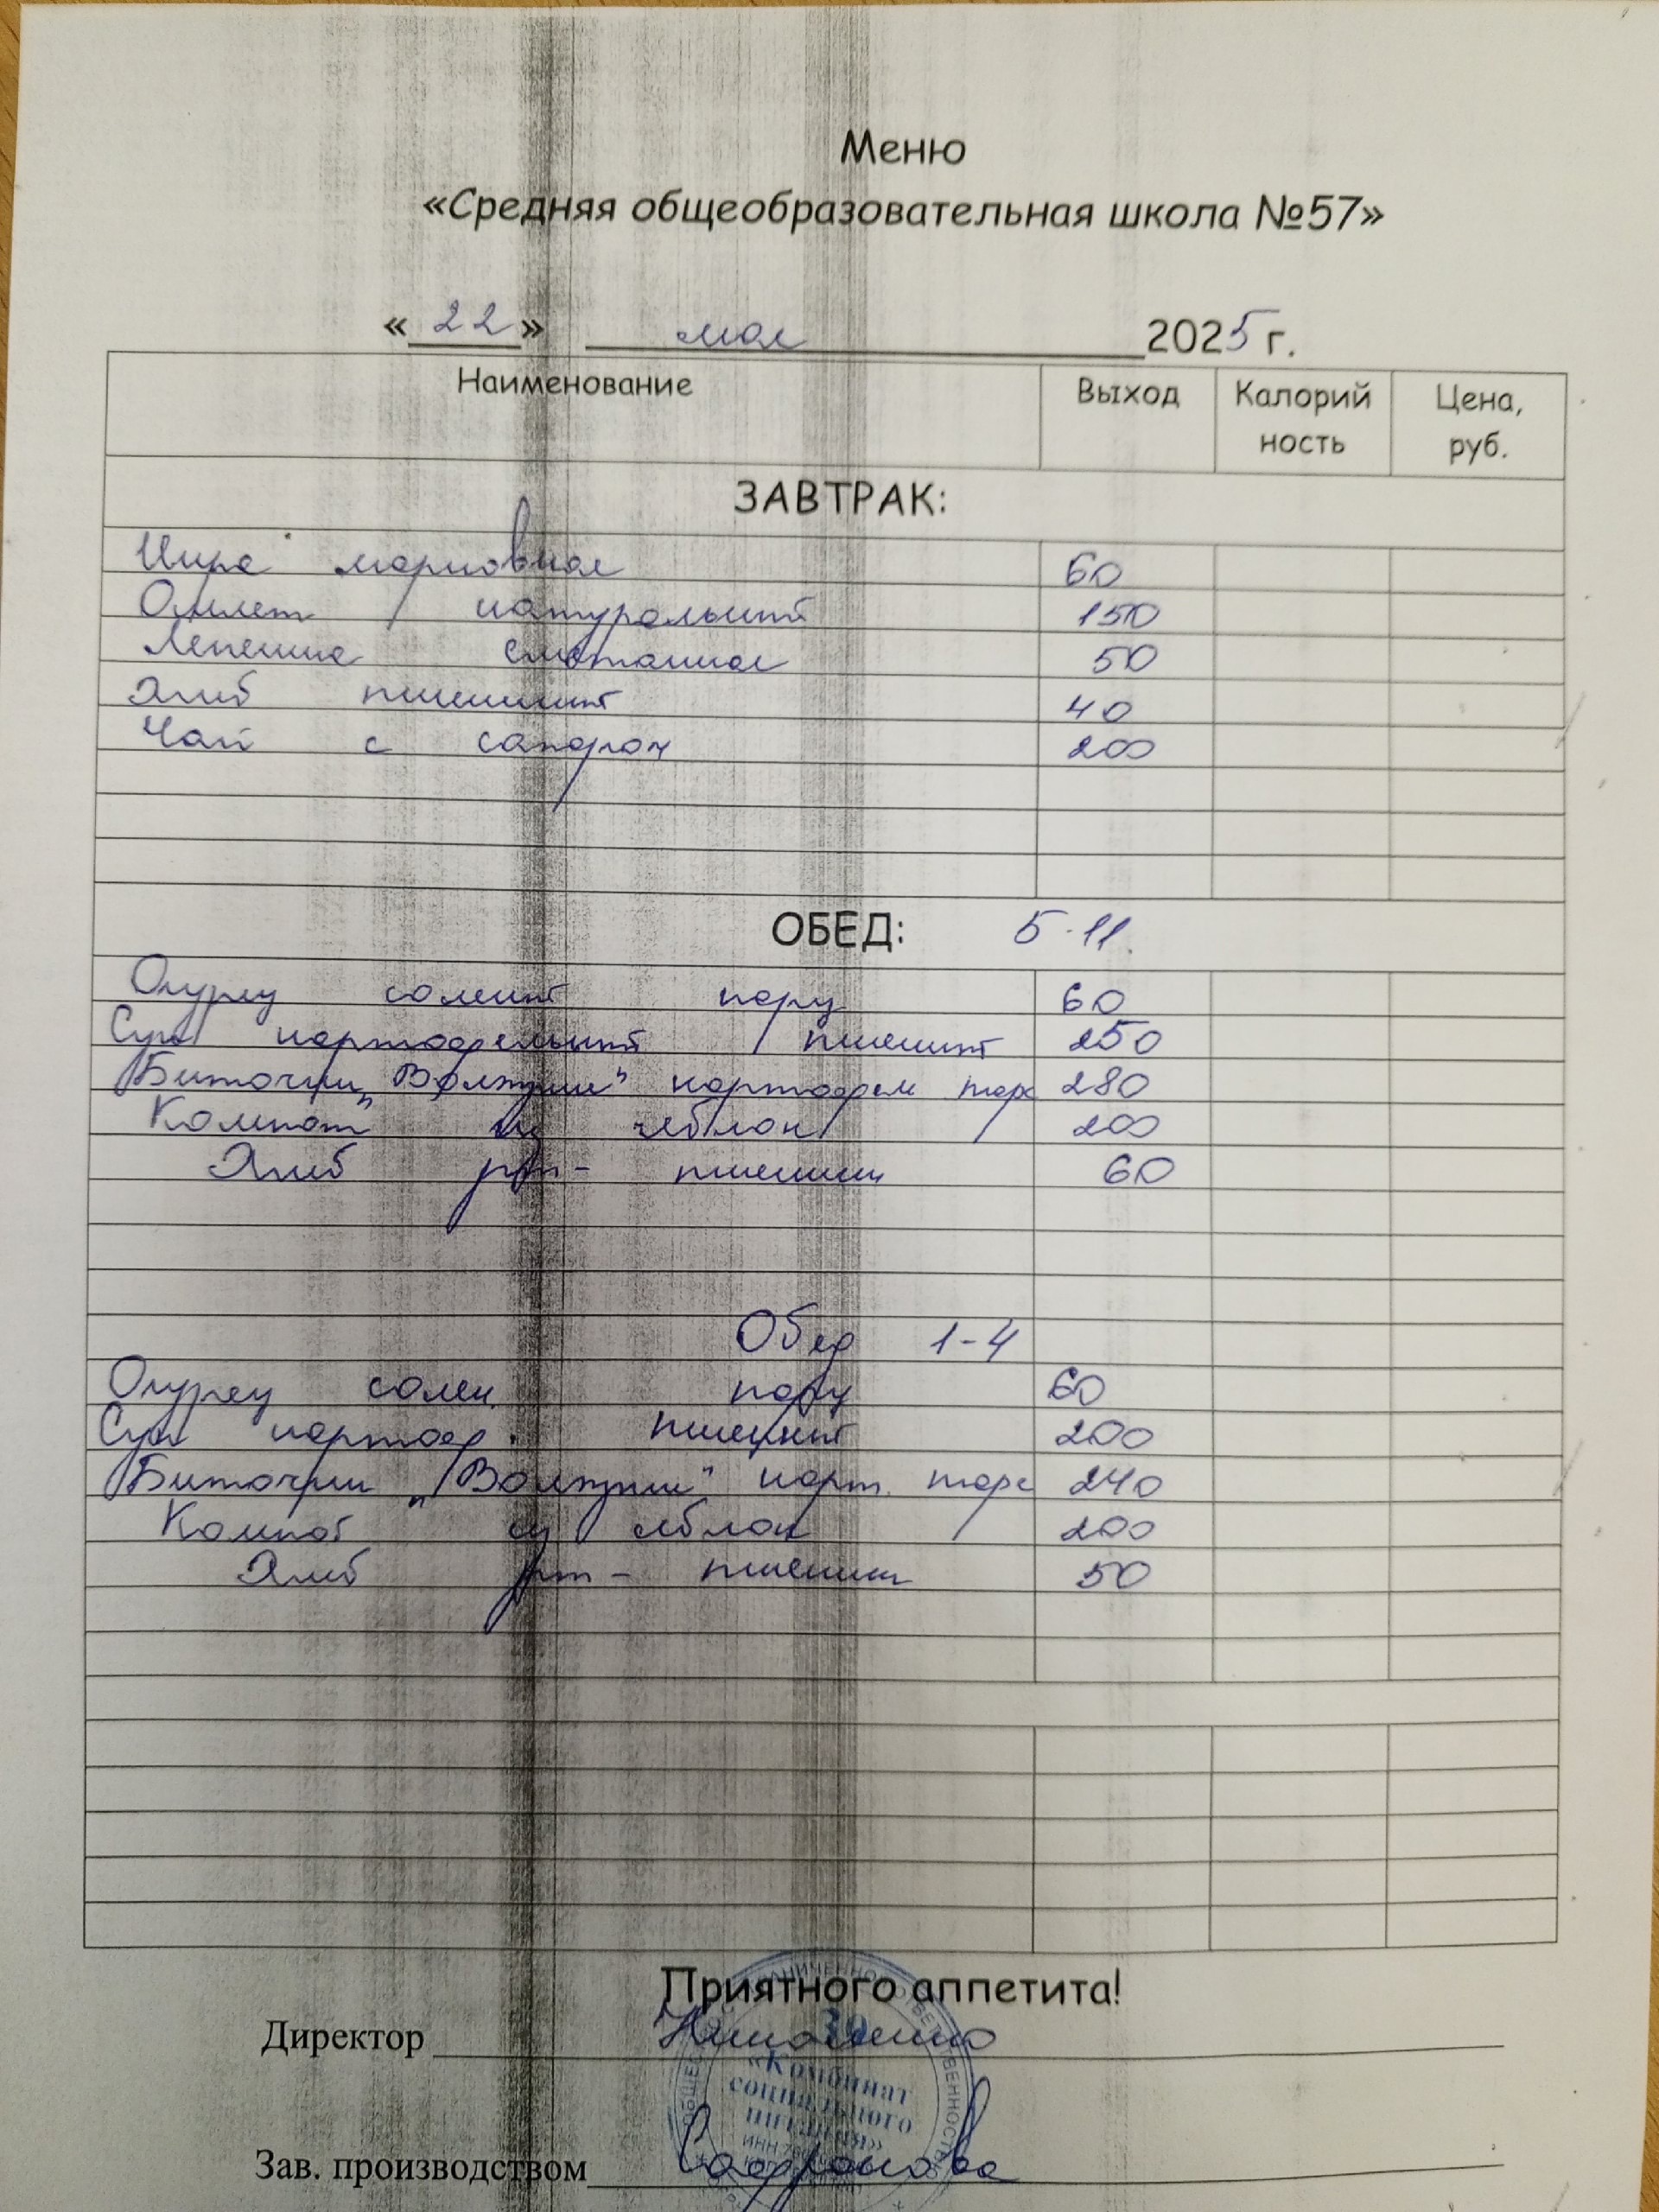 Меню
«Средняя общеобразовательная школа №57»
«22» мая 2025 г.
Наименование Выход Калорий Цена,
ность руб.
ЗАВТРАК:
Икра морковная 60
Омлет натуральный 150
Лепешка сметанная 50
Хлеб пшеничный 40
Чай с сахаром 200
ОБЕД: 5-11.
Огурец соленый 60
Суп картофельный пшенный 250
Биточки "Волжские" картофель 280
Компот из яблок 200
Хлеб рж- пшенич 60
Обед 1-4
Огурец солен. 60
Суп картоф. пшенный 200
Биточки "Волжские" карт. 240
Компот из яблок 200
Хлеб рж- пшенич 50
Приятного аппетита!
Директор
«Комбинат
социального
питания»
ИНН
Зав. производством Сафронова